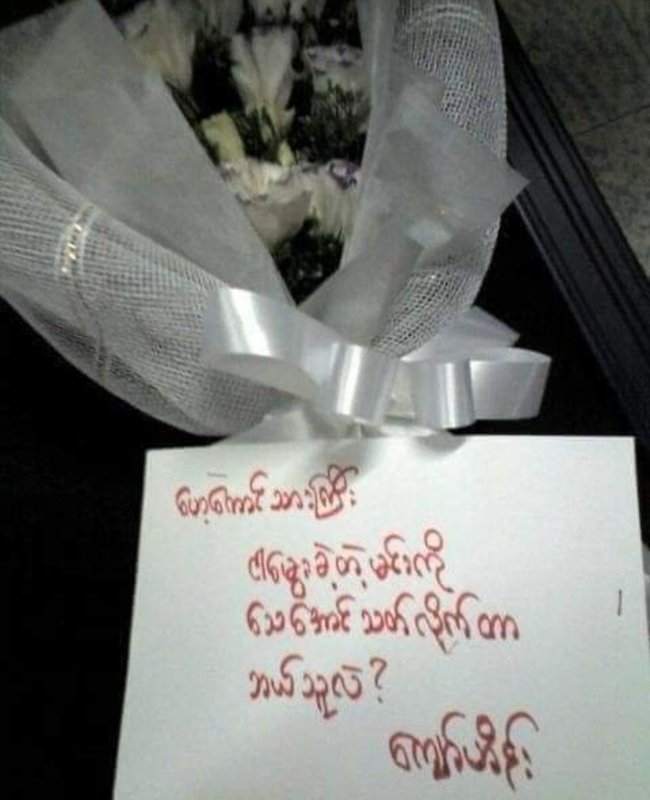 ဟေ့ကောင် သားကြီး
ငါမွေးခဲ့တဲ့ မင်းကို
သေအောင် သတ်လိုက်တာ
ဘယ်သူလဲ?
ကျော်ဟိန်း